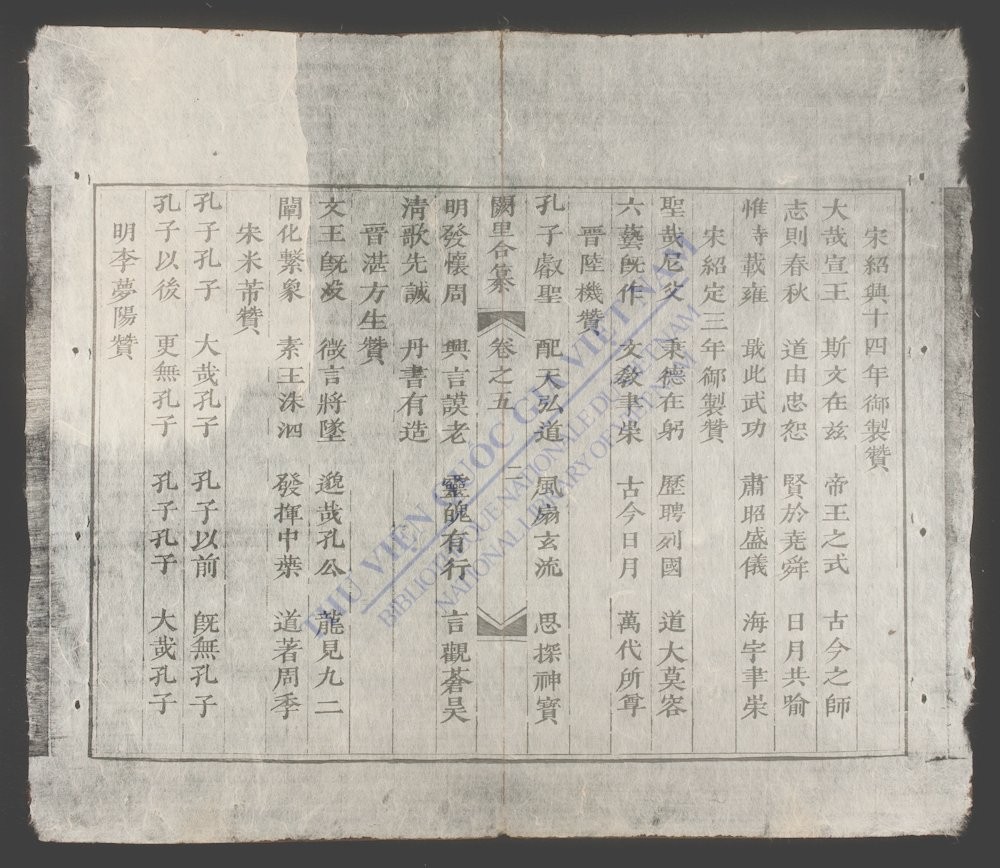 宋紹興十四年御製贊
大哉宣王 斯文在兹 帝王之式 古今之師
志則春秋 道由忠恕 賢於堯舜 日月其喻
惟時載雍 戢此武功 肅昭盛儀 海宇聿崇
宋紹定三年御製贊
聖哉尼父 秉德在躬 歷聘列國 道大莫容
六藝旣作 文教聿崇 古今日月 萬代所尊
晋陸機贊
孔子叡聖 配天弘道 風扇玄流 思探神寶
闕里合纂 卷之五 二
明發懷周 興言謨老 靈魄有行 言觀蒼昊
清歌先誠 丹書有造
晋湛方生贊
文王旣没 微言將墜 邈哉孔公 龍見九二
闡化繫象 素王洙泗 發揮中葉 道著周季
宋米芾贊
孔子孔子 大哉孔子 孔子以前 旣無孔子
孔子以後 更無孔子 孔子孔子 大哉孔子
明李夢陽贊
THƯ VIỆN QUỐC GIA VIỆT NAM
BIBLIOTHEQUE NATIONALE DU VIETNAM
NATIONAL LIBRARY OF VIETNAM